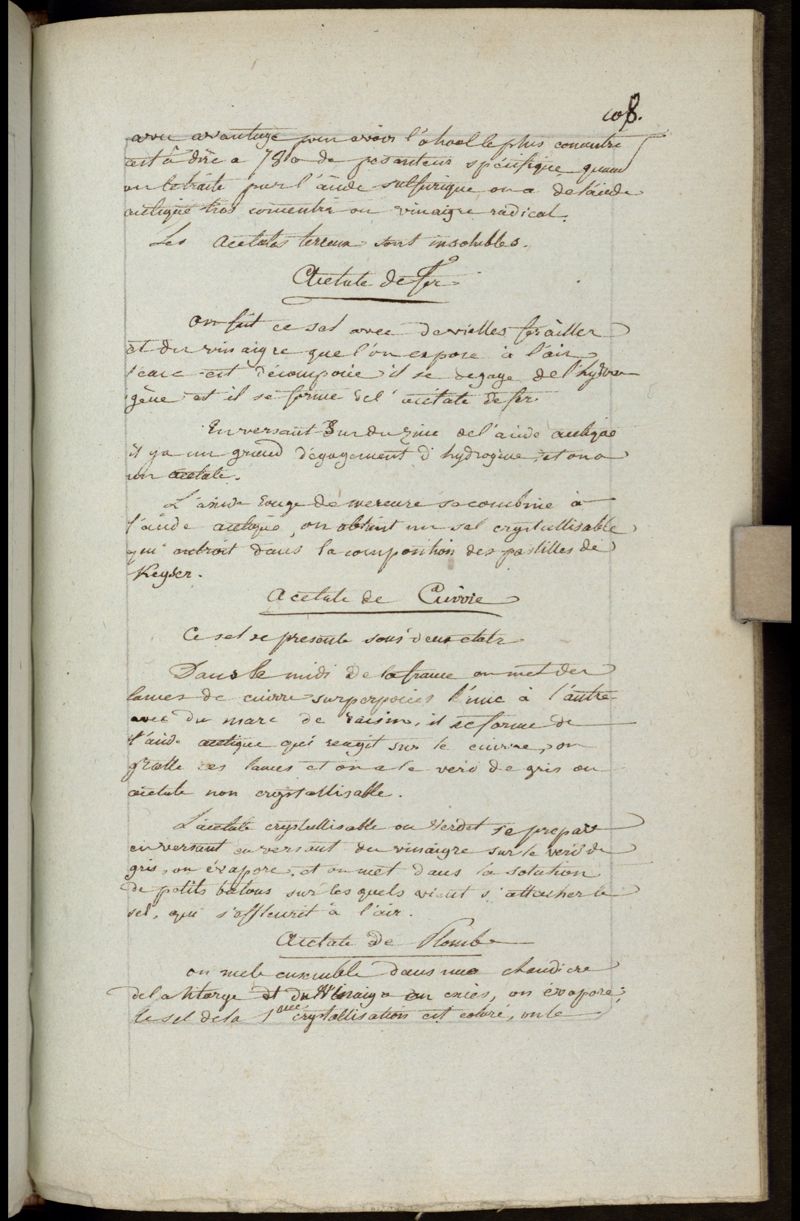 108.
avec avantage pour avoir l'alcool le plus concentré
c'est à dire a 780 de pesanteur spécifique quand
on le traite par l'acide sulfurique, on a de l'acide
acétique très concentré ou vinaigre radical.
Les acétates terreux sont insolubles.
Acétate de fer
On fait ce sel avec de vielles ferailles
et du vinaigre que l'on expose à l'air
l'eau est décomposée il se degage de l'hydro
gène et il se forme del' acétate de fer.
En versant sur du zinc de l'acide acétique
il y a un grand dégagement d'hydrogène, et on a
un acétate.
L'oxide rouge de mercure se combine à
l'acide acétique, on obtient un sel crystallisable
qui entroit dans la composition des pastilles de
Keyser.
Acetate de Cuivre
Ce sel se presente sous deux états
Dans le midi de la france on met des
lames de cuivre surperposées l'une à l'autre
avec du marc de raisin, il se forme de
l'acide acétique qui reagit sur le cuivre, on
gratte ces lames et on a le verd de gris ou
acétate non crystallisable.
L'acétate crystallisable ou verdet se prepare
en versant en versant du vinaigre sur le verd de
gris, on évapore, et on met dans la solution
de petits batons sur les quels vient s'attacher le
sel, qui s'effleurit à l'air.
Acétate de Plomb
on mele ensemble dans une chaudiere
de la litarge et du vinaigre en excès, on évapore;
le sel de la 1ere crystallisation est coloré, on le